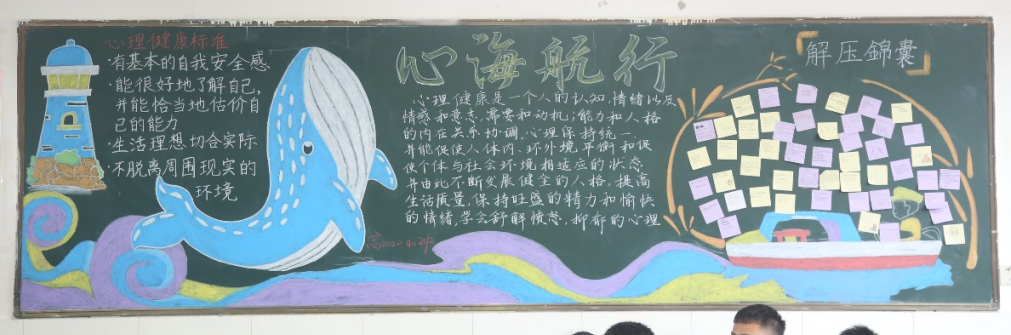 心理健康标准
·有基本的自我安全感
·能很好地了解自己,
并能恰当地估价自
己的能力
·生活理想切合实际
·不脱离周围现实的
环境
心海航行
心理健康是一个人的认知,情绪以及
情感和意志,需要和动机,能力和人格
的内在关系协调,心理保持统一,
并能促使人体内、环外境平衡和促
使个体与社会环境相适应的状态,
并由此不断发展健全的人格,提高
生活质量,保持旺盛的精力和愉快
的情绪,学会舒解愤怒,抑郁的心理
解压錦囊